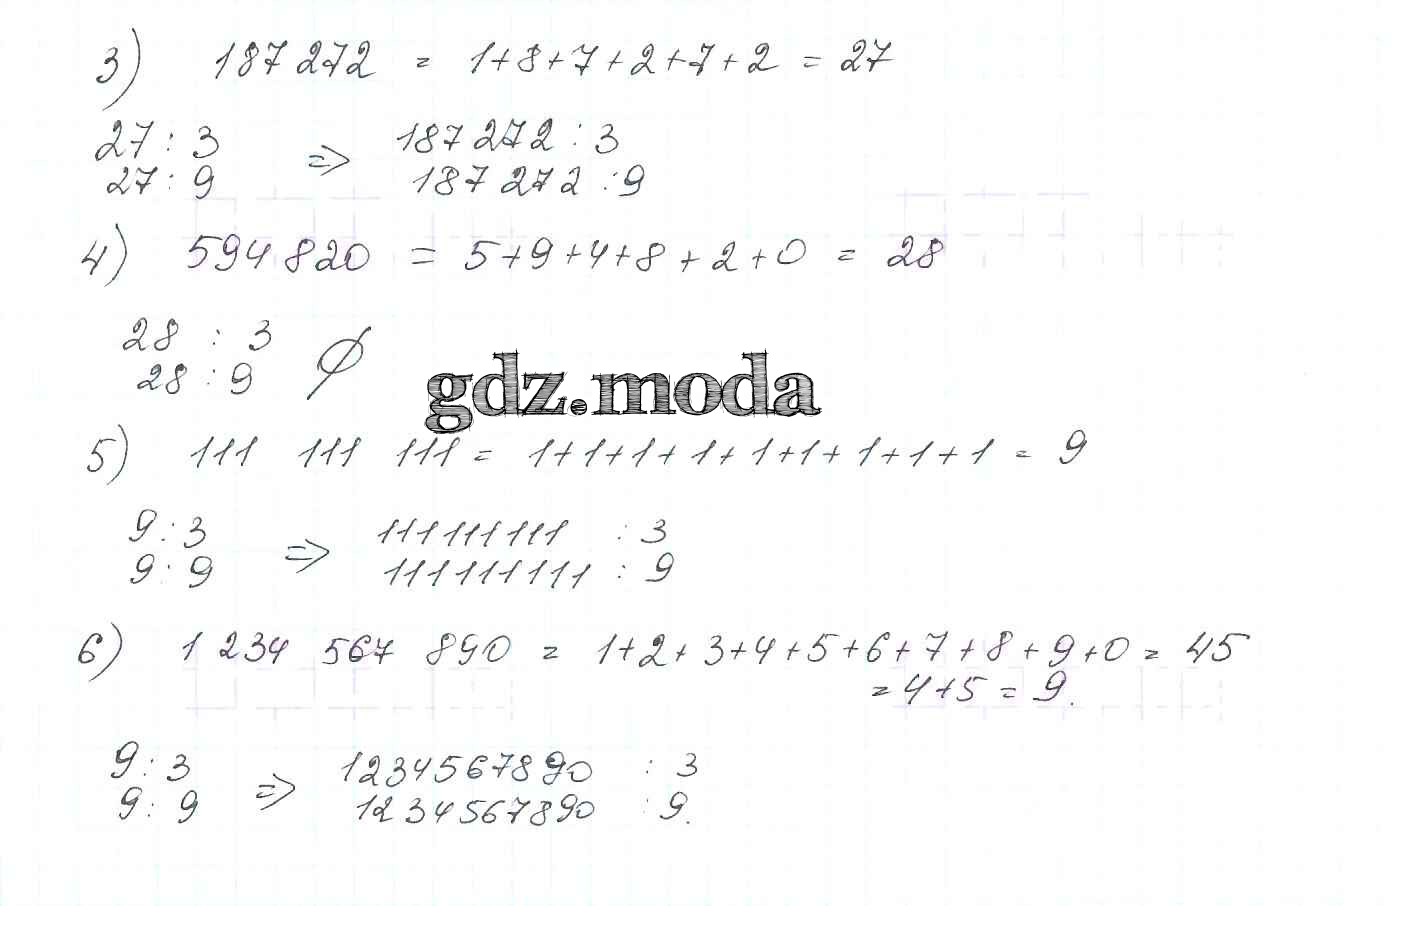 3) 187 272 = 1+8+7+2+7+2 = 27
27 : 3 => 187 272 : 3
27 : 9 187 272 : 9
4) 594 820 = 5+9+4+8+2+0 = 28
28 : 3 ∅
28 : 9
gdz.moda
5) 111 111 111 = 1+1+1+1+1+1+1+1+1 = 9
9 : 3 => 111111111 : 3
9 : 9 111111111 : 9
6) 1 234 567 890 = 1+2+3+4+5+6+7+8+9+0 = 45
= 4+5 = 9.
9 : 3 => 1234567890 : 3
9 : 9 1234567890 : 9.